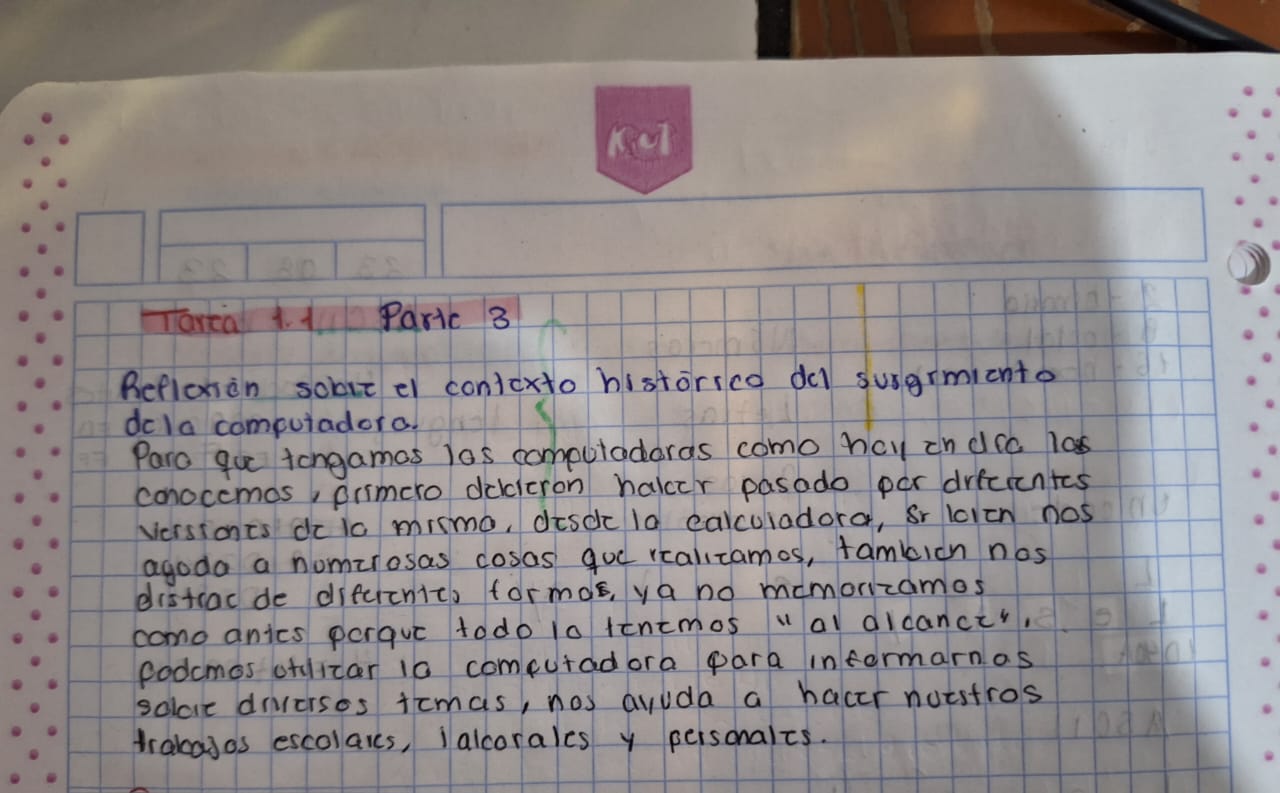 Kiut
Tarea 1.1 Parte 3
Reflexión sobre el contexto histórico del surgimiento
de la computadora.
Para que tengamos las computadoras como hoy en día las
conocemos, primero debieron haber pasado por diferentes
versiones de la misma, desde la calculadora, si bien nos
ayuda a numerosas cosas que realizamos, tambien nos
distrae de diferentes formas, ya no memorizamos
como antes porque todo lo tenemos "al alcance".
podemos utilizar la computadora para informarnos
sobre diversos temas, nos ayuda a hacer nuestros
trabajos escolares, laborales y personales.